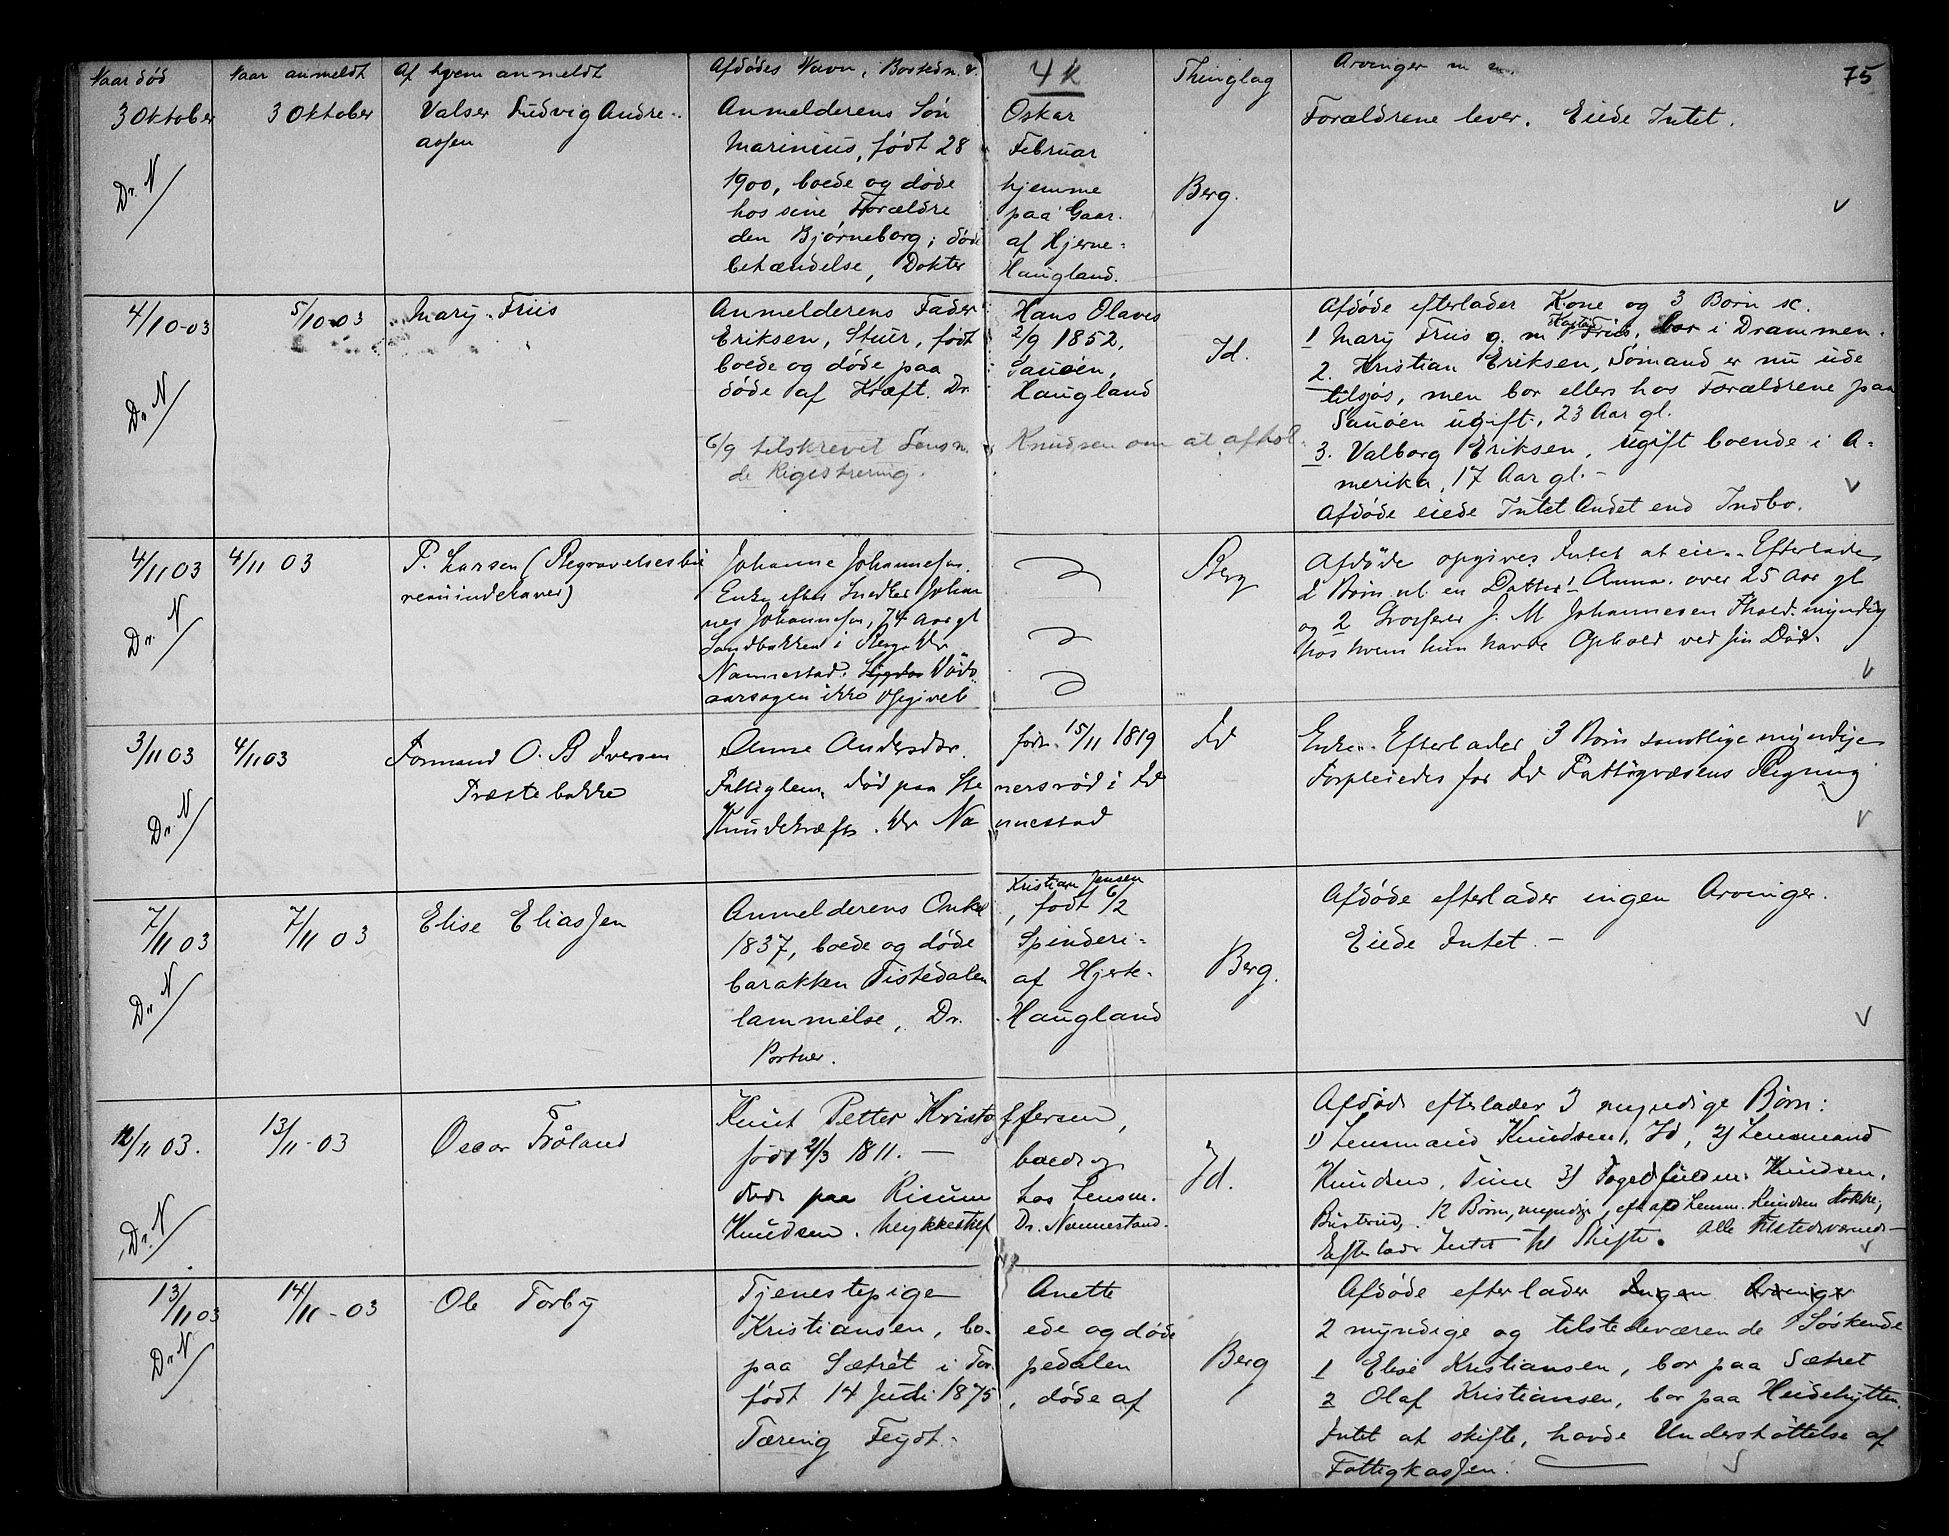 Naar død Naar anmeldt Af hvem anmeldt Afdødes Navn, Bosted m.v. 4k Thinglag Arvinger m m. 75
3 Oktober 3 Oktober Valser Ludvig Andre- Anmelderens Søn Oskar Forældrene lever. Eiede Intet.
assen Marinius, født 28 Februar
Dr. N 1900, boede og døde hjemme Berg.
hos sine Forældre paa Gaar-
den Bjørneborg; døde af Hjerne-
betændelse, Dokter Haugland.
4/10-03 5/10-03 Mary Friis Anmelderens Fader Hans Olaves Id. Afdøde efterlader Kone og 3 Børn sc.
Eriksen, Stuer, født 2/9 1852, 1 Mary Friis g. m Friis, bor i Drammen.
boede og døde paa Sauøen, 2. Kristian Eriksen, Sømand er nu ude
Dr. N døde af Kræft. Dr. Haugland tilsjøs, men bor ellers hos Forældrene paa
Sauøen ugift, 23 Aar gl.
6/9 tilskrevet Lensm. Knudsen om at afhol- 3. Valborg Eriksen, ugift boende i A-
de Rigistrering. merika, 17 Aar gl. -
Afdøde eiede Intet Andet end Indbo.
4/11 03 4/11 03 P. Larsen (Begravelsesbu Johanne Johannesen. Berg Afdøde opgives Intet at eie. - Efterlader
reauindehaver) Enke efter Snedker Johan 2 Børn nl. en Datter 1 Anna over 25 Aar gl
Dr. N nes Johannesen, 74 Aar gl og 2 Grosserer J. M Johannesen Fhald. myndig
Sandbakken i Berg. Dr hos hvem hun havde Ophold ved sin Død.
Nannestad. Døds
aarsagen ikke opgivet
3/11 03 4/11 03 Formand O. B Iversen Anne Andersdtr. født 15/11 1819 Id Enke. Efterlader 3 Børn samtlige myndige
Præstebakke Fattiglem, død paa Ste nersrød i Id Forpleiedes for Id Fattigvæsens Regning
Dr. N Knudekræft. Dr Na nnestad
7/11 03 7/11 03 Elise Eliassen Anmelderens Onkel Kristian Jensen, født 6/2 Berg. Afdøde efterlader ingen Arvinger.
1837, boede og døde Spinderi- Eiede Intet. -
Dr N barakken Tistedalen af Hjerte-
lammelse, Dr. Haugland
Portner.
12/11 03. 13/11-03 Oscar Frøland Knut Petter Kristo ffersen, Id. Afdøde efterlader 3 myndige Børn:
født 21/3 1811. - boede og 1) Lensmand Knudsen, Id, 2) Lensmand
døde paa Risum hos Lensm. Knudsen, Tune 3) Fogedfuldm. Knudsen,
Dr. N Knudsen. Dr. Nannestand. Buskrud, Børn, myndige, efter afd Lensm. Knudsen
Efterlader Intet til Skifte. Alle tilstedeværende
13/11 03 14/11-03 Ole Torby Tjenestepige Anette Berg Afdøde efterlader Ingen Arvinger
Kristiansen, bo- ede og døde 2 myndige og tilstedeværende Søskende
Dr N paa Sætret i Tor- pedalen 1 Elise Kristiansen, bor paa Sætret
født 14 Juli 1875, døde af 2 Olaf Kristiansen, bor paa Heidehytten.
Tæring Feydt. Intet at skifte, havde Understøttelse af
Fattigkassen.